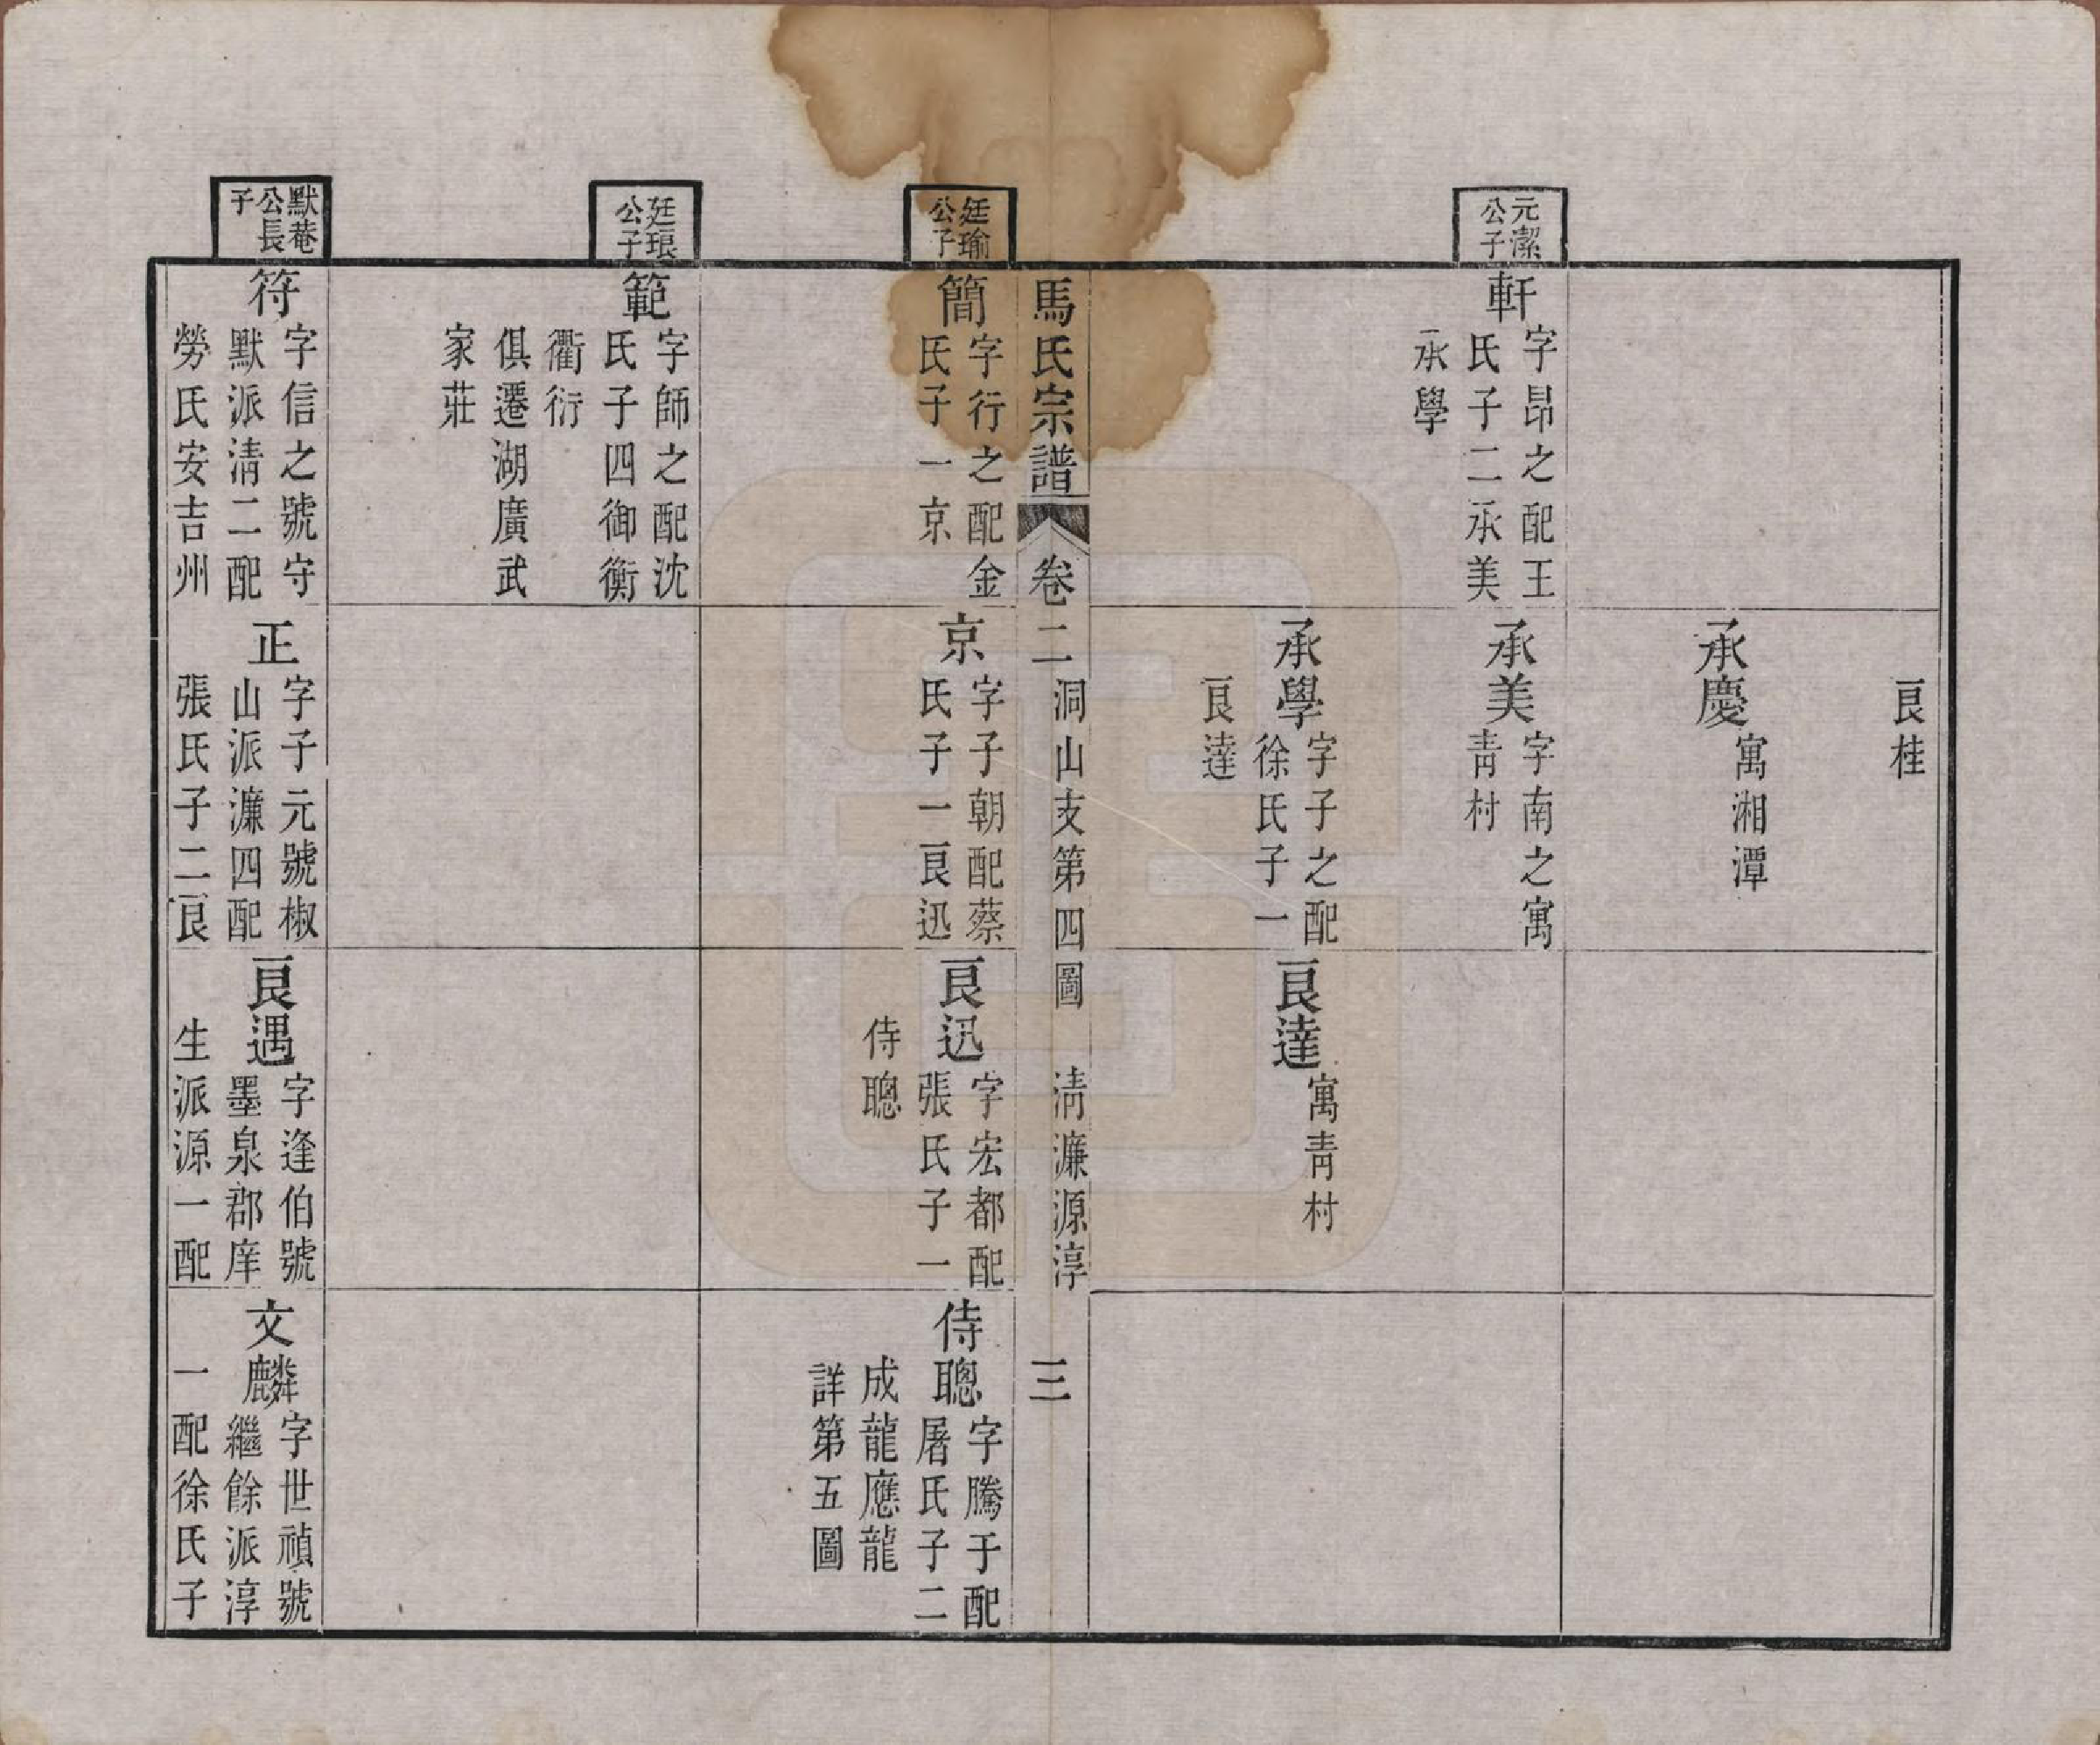 良桂
承慶
寓湘潭
元潔
公子
軒
字昂之配王
氏子二承美
承學
承美
字南之寓
青村
承學
字子之配
徐氏子一
良達
良達
寓青村
馬氏宗譜
卷二
洞山支第四圖 清濂源淳
三
廷瑜
公子
簡
字行之配金
氏子一京
京
字子朝配蔡
氏子一良迅
良迅
字宏都配
張氏子一
侍聰
侍聰
字騰于配
屠氏子二
成龍應龍
詳第五圖
廷琅
公子
範
字師之配沈
氏子四御衡
衢衍
俱遷湖廣武
家莊
默菴
公長
子
符
字信之號守
默派清二配
勞氏安吉州
正
字子元號椒
山派濂四配
張氏子二良
良遇
字逢伯號
墨泉郡庠
生派源一配
文麟
字世禎號
繼餘派淳
一配徐氏子